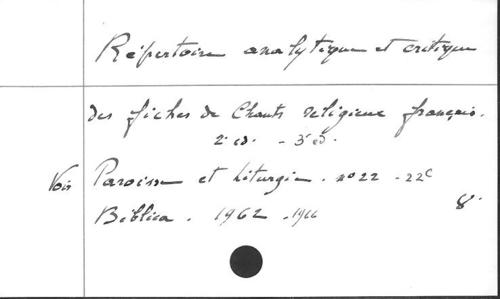 Répertoire analytique et critique
des fiches de Chants religieux français.
2e éd. - 3e éd.
Voir Paroisse et Liturgie. n° 22 - 22c
Biblica. 1962 - 1966 8°.